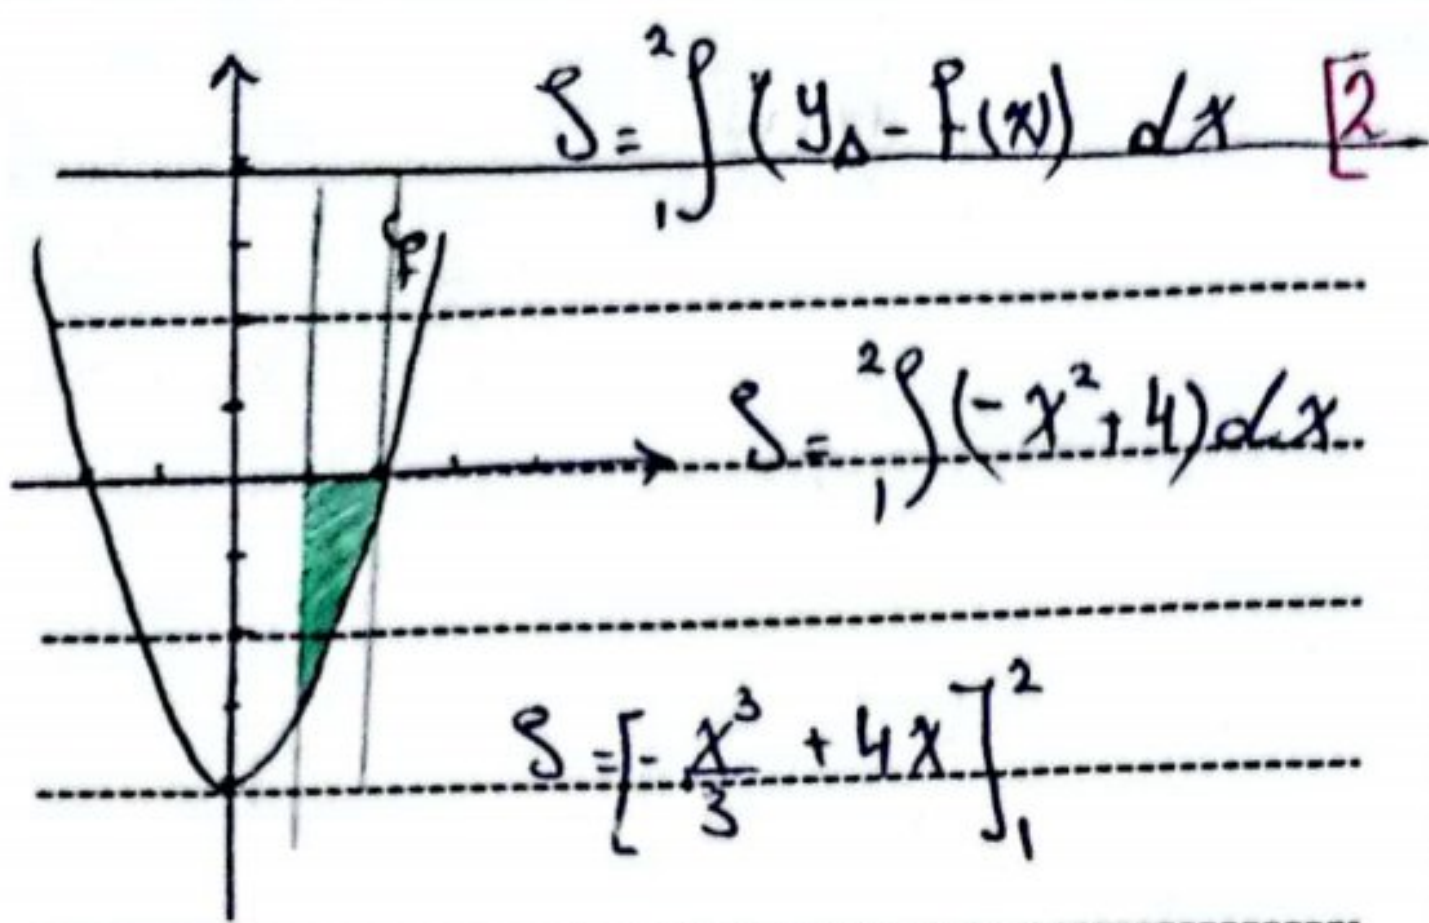 S = ₁∫² (y_Δ - f(x)) dx [2
f
S = ₁∫² (-x² + 4) dx
S = [-x³/3 + 4x]₁²